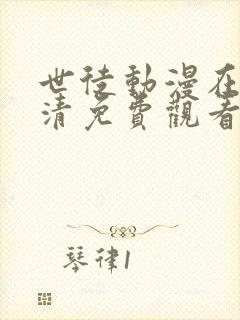 世徒動漫在
清免費觀看
琴律1